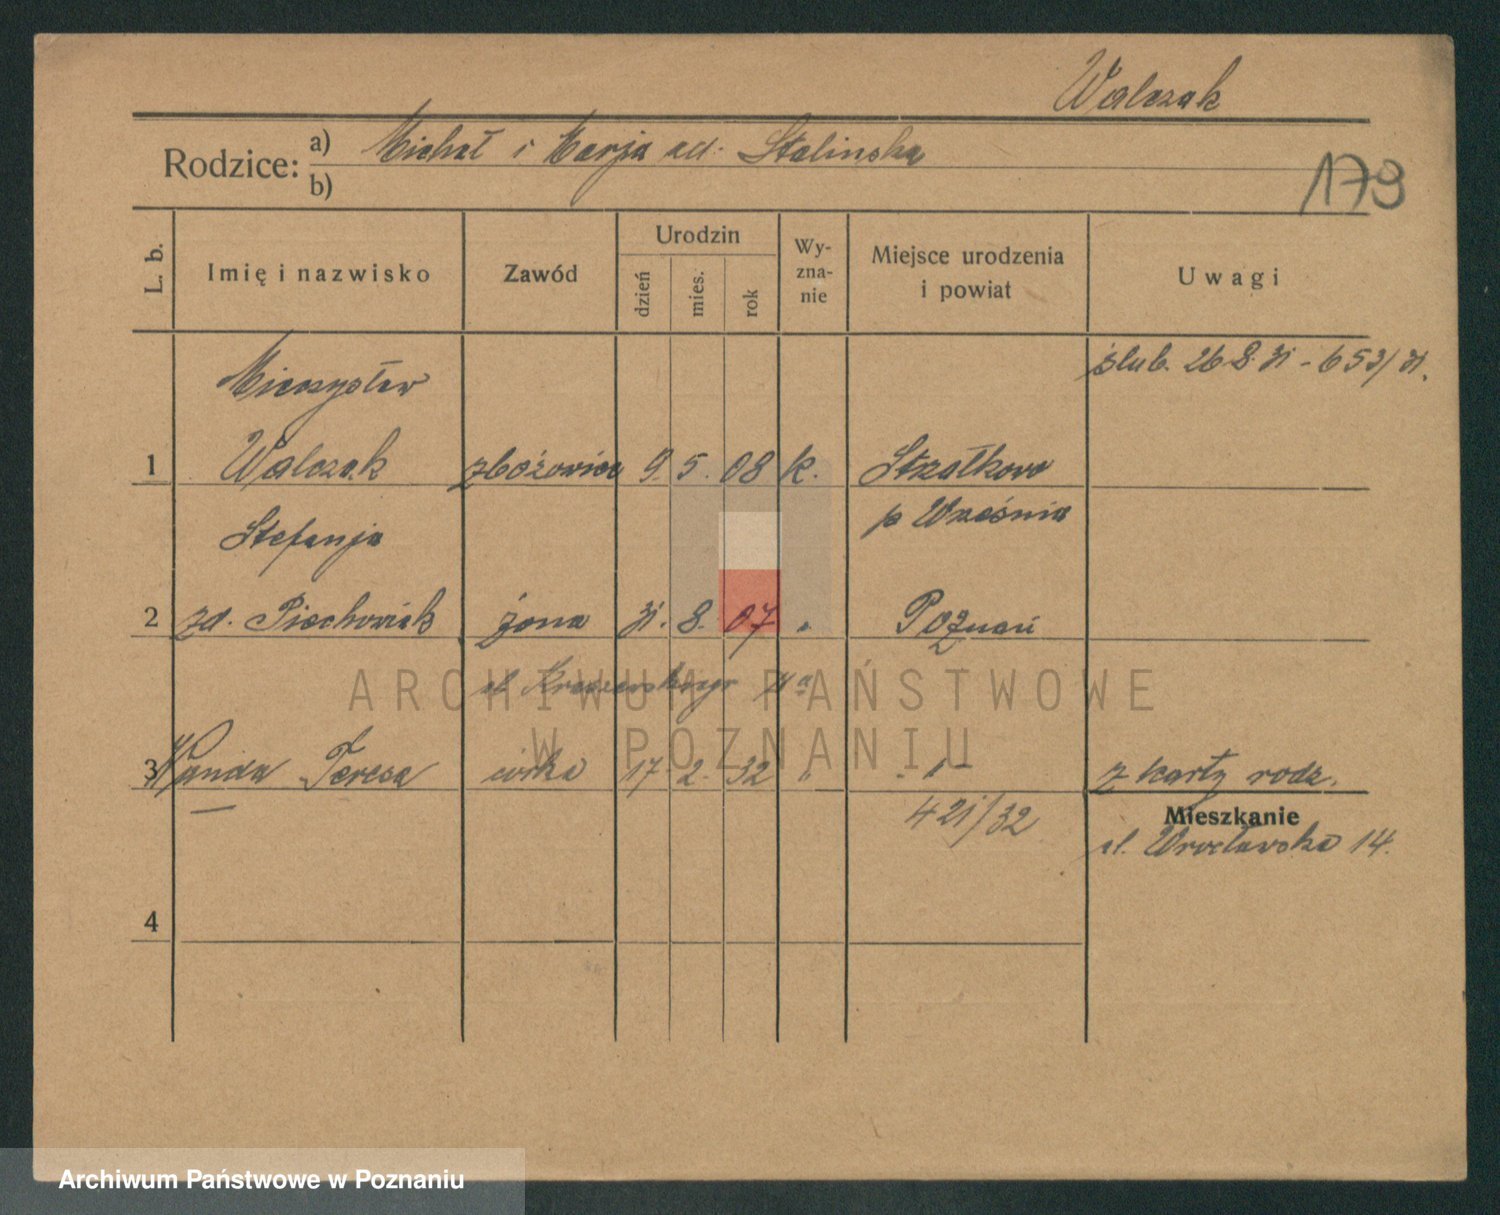 Walczak
Rodzice: a) Michał i Marja zd. Stalinska
b)
179
L. b. Imię i nazwisko Zawód Urodzin dzień mies. rok Wy-zna-nie Miejsce urodzenia i powiat Uwagi
Mieczysław ślub. 26 8. 31 - 653/31.
1 Walczak zbożowiec 9. 5. 08 k. Strzałkowo
Stefanja p Września
2 zd. Piechowiak żona 31. 8. 07 " Poznań
ul. Kraszewskiego
ARCHIWUM PAŃSTWOWE
W POZNANIU
3 Wanda Teresa córka 17. 2. 32 " - " - z karty rodz.
421/32 Mieszkanie
ul. Wrocławska 14.
4
Archiwum Państwowe w Poznaniu